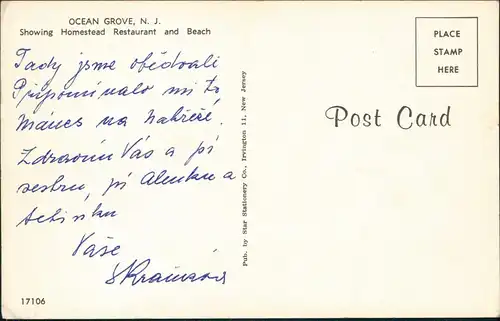 OCEAN GROVE, N. J.
Showing Homestead Restaurant and Beach
PLACE
STAMP
HERE
Tady jsme obědvali
Připomínalo mi to
Mánes na nábřeží.
Zdravím Vás a pí
sestru, pí Alenku a
Vaše
Post Card
Pub. by Star Stationery Co., Irvington 11, New Jersey
17106